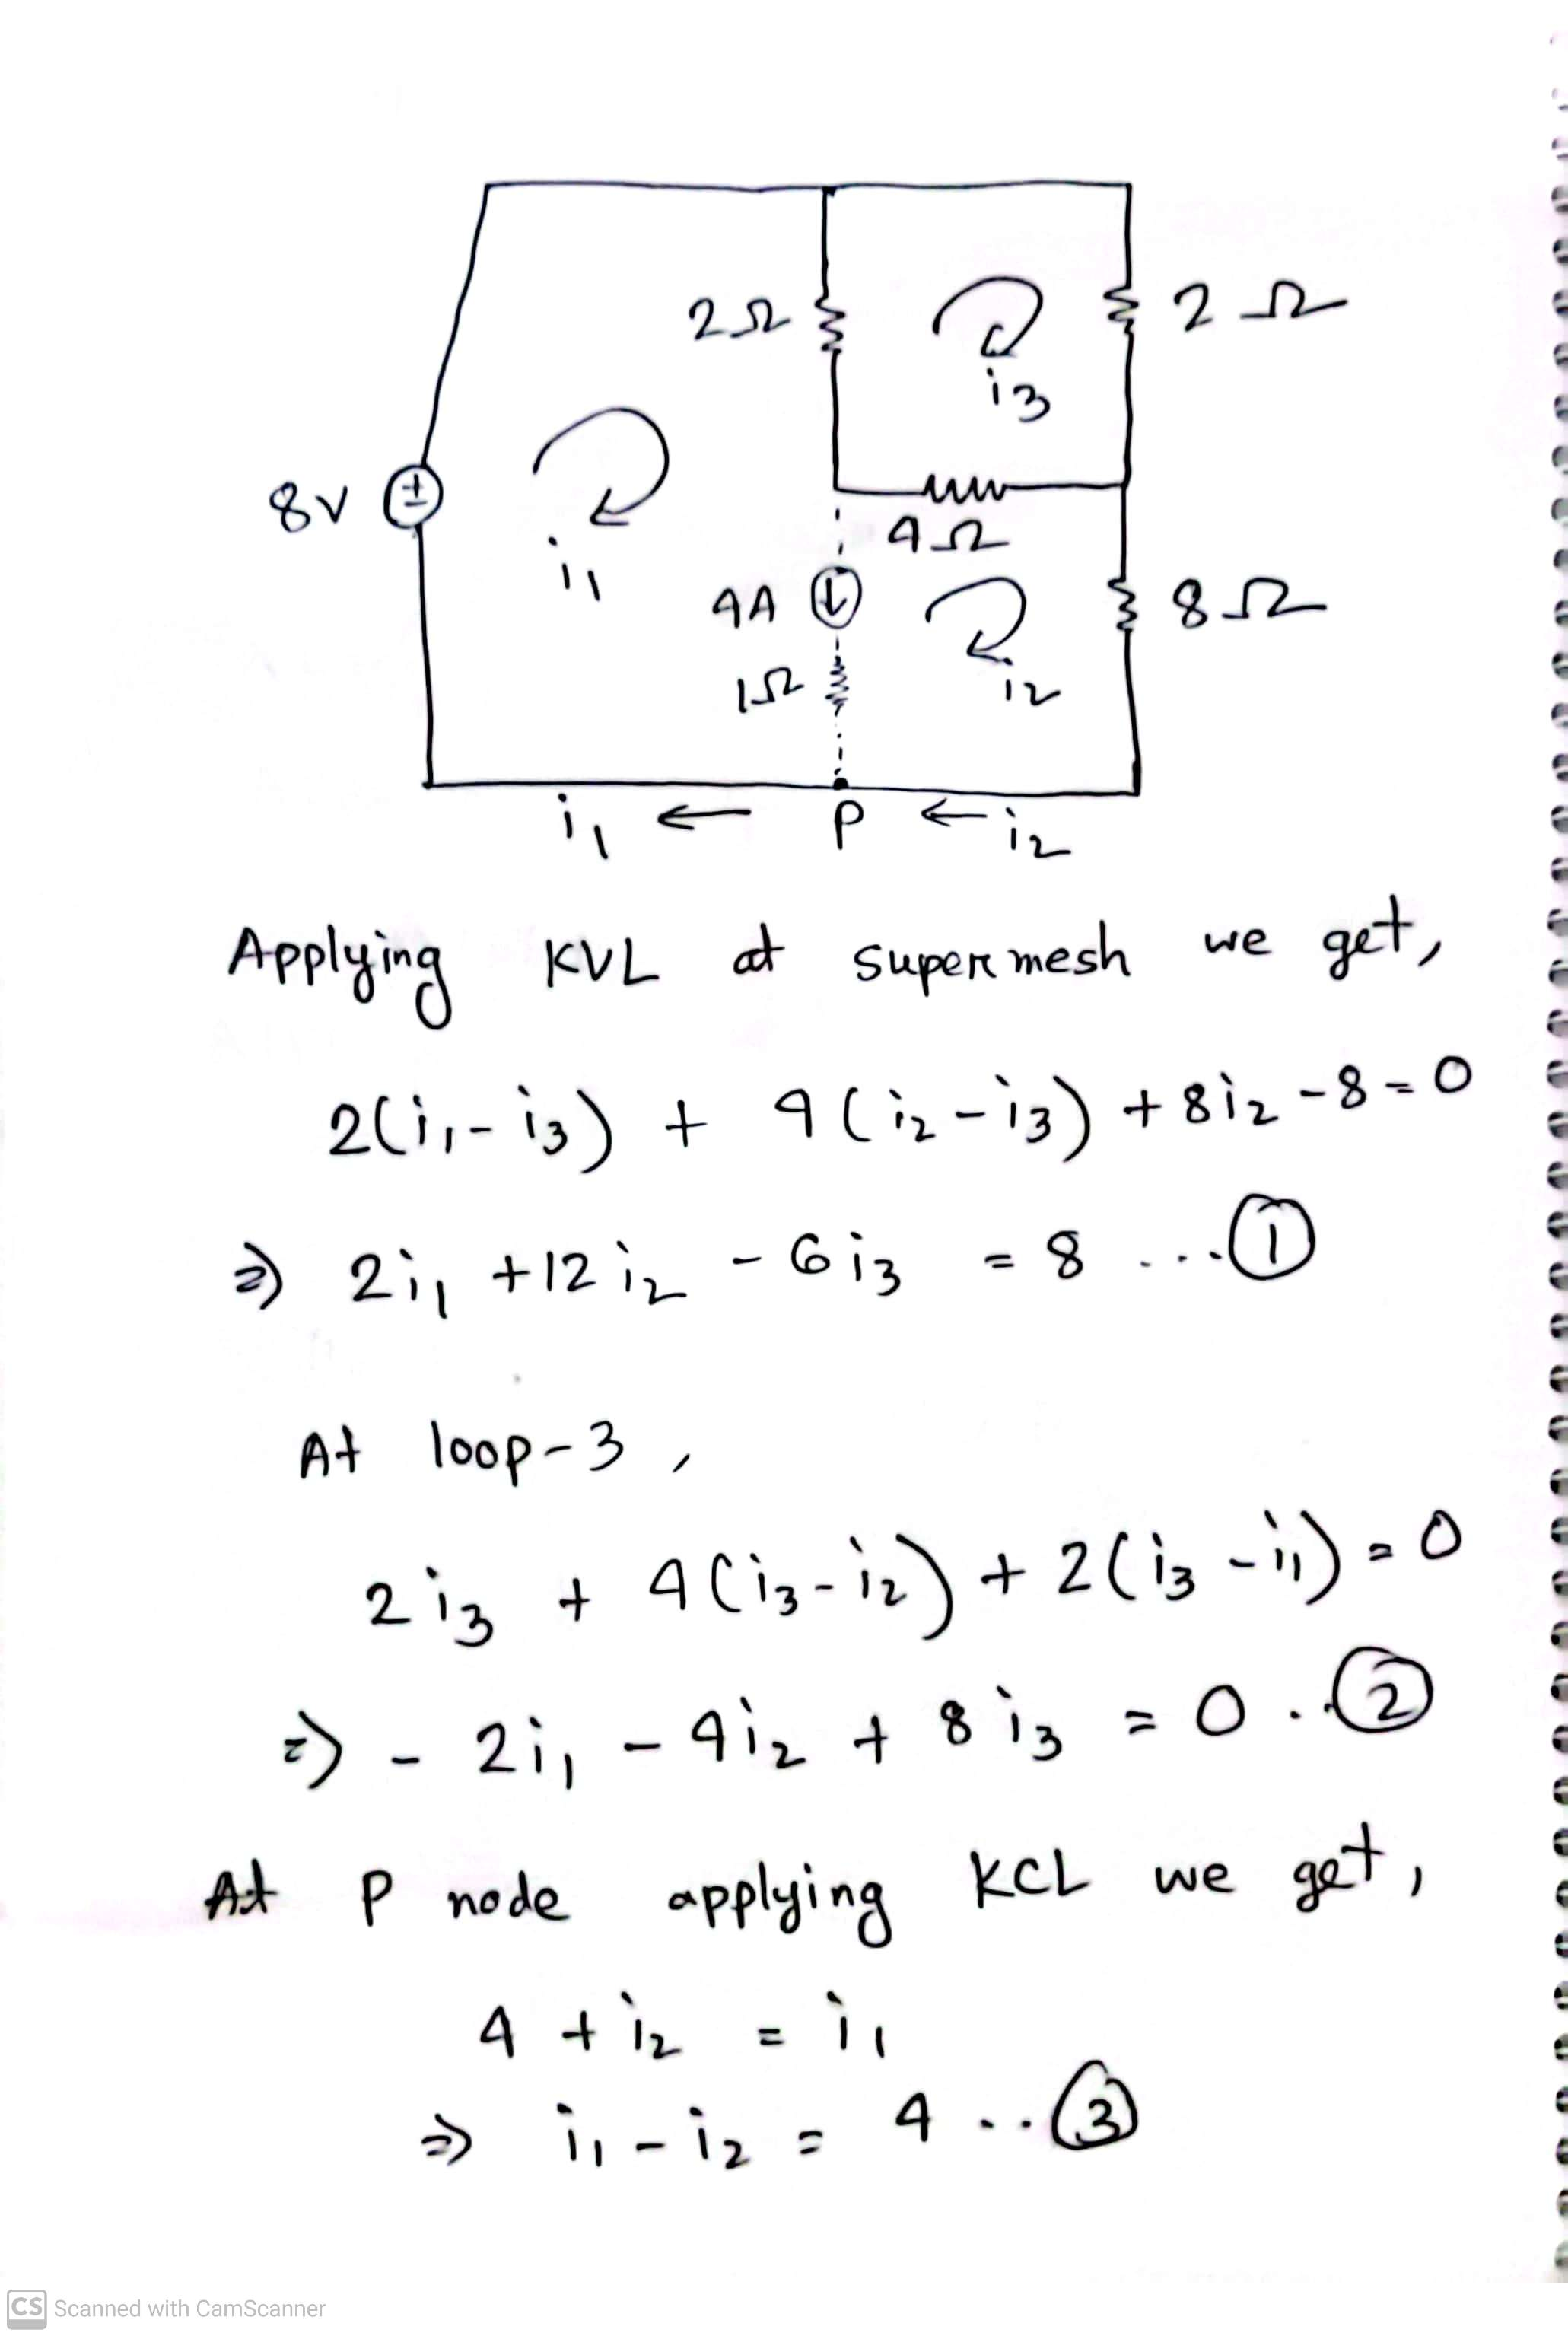 2Ω
2Ω
i3
8V
i1
4Ω
4A
8Ω
1Ω
i2
i1 ← P ← i2
Applying KVL at supermesh we get,
2(i1 - i3) + 4(i2 - i3) + 8i2 - 8 = 0
⇒ 2i1 + 12i2 - 6i3 = 8 ...①
At loop-3,
2i3 + 4(i3 - i2) + 2(i3 - i1) = 0
⇒ - 2i1 - 4i2 + 8i3 = 0 ..②
At P node applying KCL we get,
4 + i2 = i1
⇒ i1 - i2 = 4 ..③
CS Scanned with CamScanner